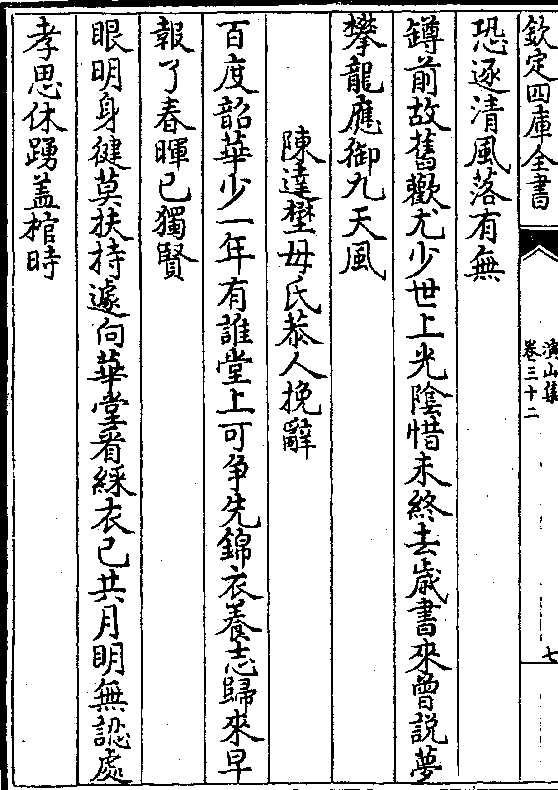 欽定四庫全書
演山集
卷三十二
七
恐逐清風落有無
罇前故舊歡尤少世上光陰惜未終去歲書來曾說夢
攀龍應御九天風
陳達埜母氏恭人挽辭
百度韶華少一年有誰堂上可爭先錦衣養志歸來早
報了春暉已獨賢
眼明身健莫扶持遽向華堂着綵衣已共月明無認處
孝思休踴盖棺時